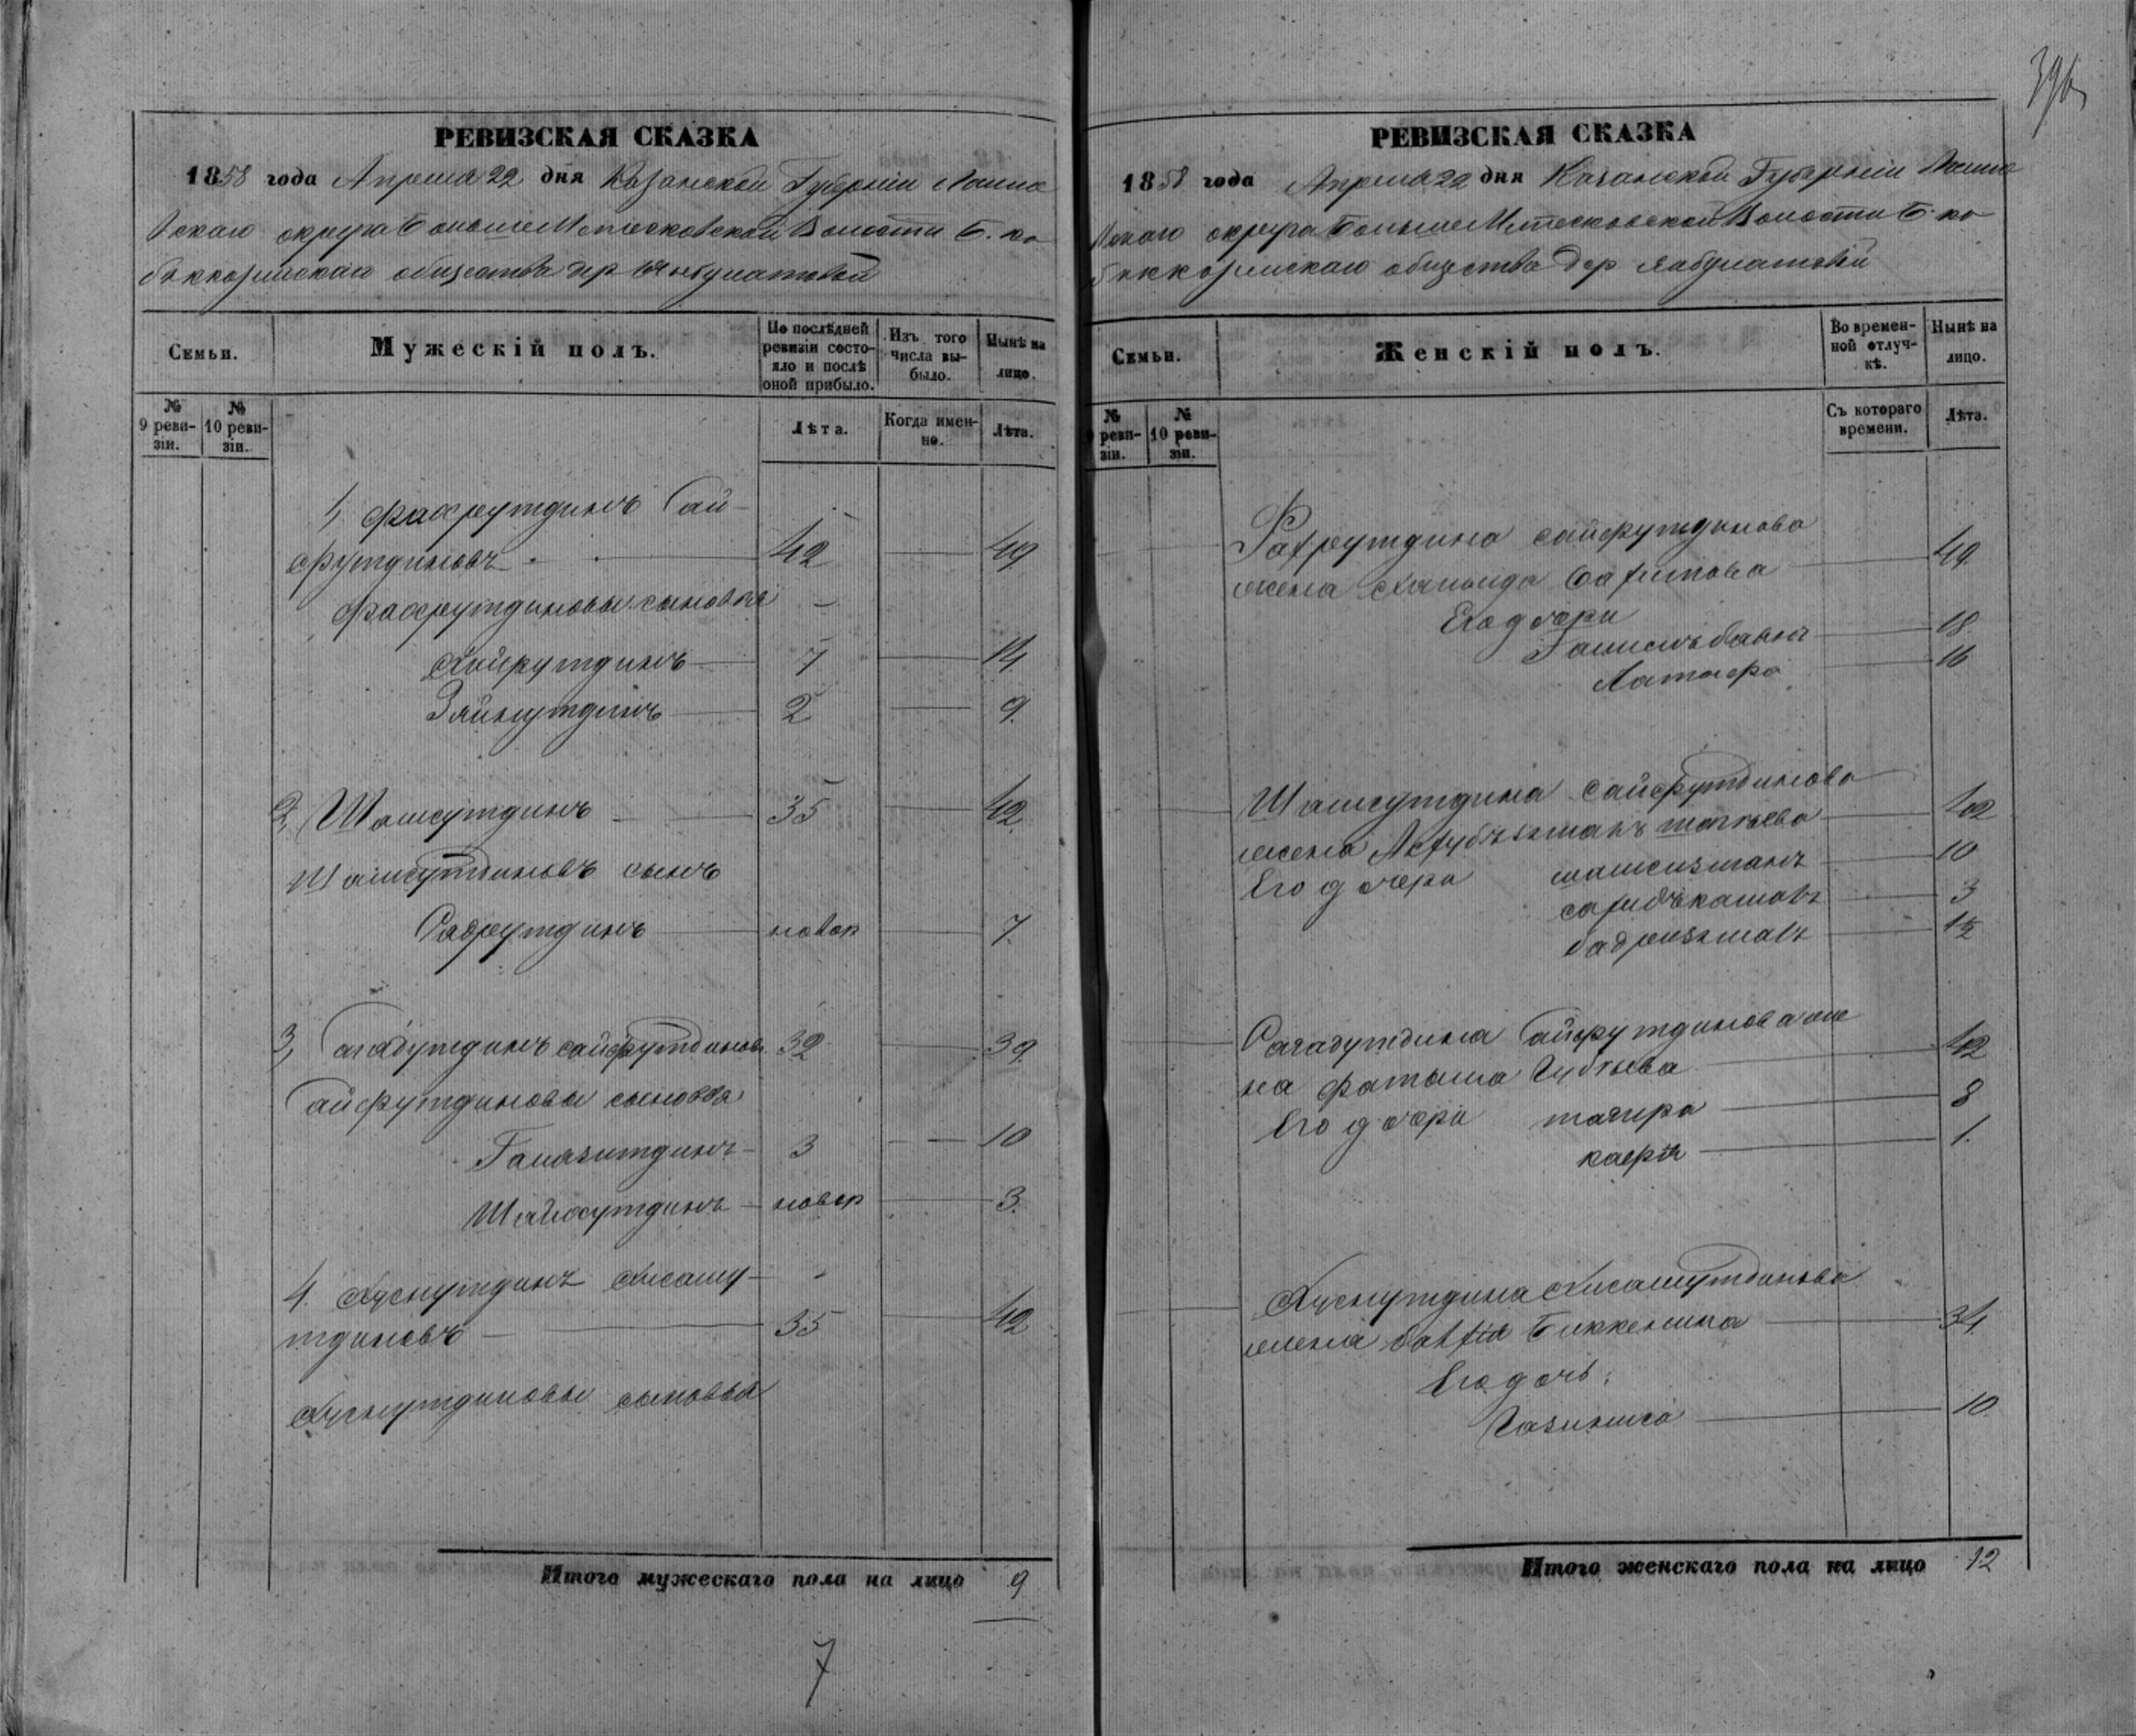 396
РЕВИЗСКАЯ СКАЗКА
1858 года Апреля 22 дня Казанской Губерніи Лаише
вскаго округа Большеметесковской Волости Б. ко
бяккозинскаго общества дер Янбулатовой
Семьи.
Мужескій полъ.
По послѣдней ревизіи состояло и послѣ оной прибыло.
Изъ того числа выбыло.
Нынѣ на лицо.
№ 9 ревизіи.
№ 10 ревизіи.
Лѣта.
Когда именно.
Лѣта.
1, Фахрутдинъ Сай-
футдиновъ 42 49
Фахрутдиновы сыновья
Хайрутдинъ 7 14
Зяйнутдинъ 2 9.
2, Шамсутдинъ 35 42.
Шамсутдиновъ сынъ
Садрутдинъ новор 7.
3, Сагадутдинъ сайфутдиновъ 32 39.
Сайфутдиновы сыновья
Галязитдинъ 3 10
Шайхутдинъ новор 3.
4. Хуснутдинъ Хисаму-
тдиновъ 35 42
Хуснутдиновы сыновья
Итого мужескаго пола на лицо 9
7
РЕВИЗСКАЯ СКАЗКА
1858 года Апреля 22 дня Казанской Губерніи Лаише
вскаго округа Большеметесковской Волости Б. ко
бяккозинскаго общества дер Янбулатовой
Семьи.
Женскій полъ.
Во временной отлучкѣ.
Нынѣ на лицо.
№ 9 ревизіи.
№ 10 ревизіи.
Съ котораго времени.
Лѣта.
Фахрутдина сайфутдинова
жена Хамида 49.
Его дочери
18.
16
Шамсутдина Сайфутдинова
жена 42
Его дочери шамсизманъ 10
3
бадризман 1½
Сагадутдина Сайфутдинова же
на Фатыма Губаева 42
Его дочери тагира 8
1.
Хуснутдина Хисамутдинова
жена Биккенина 34
Его дочь:
10.
Итого женскаго пола на лицо 12